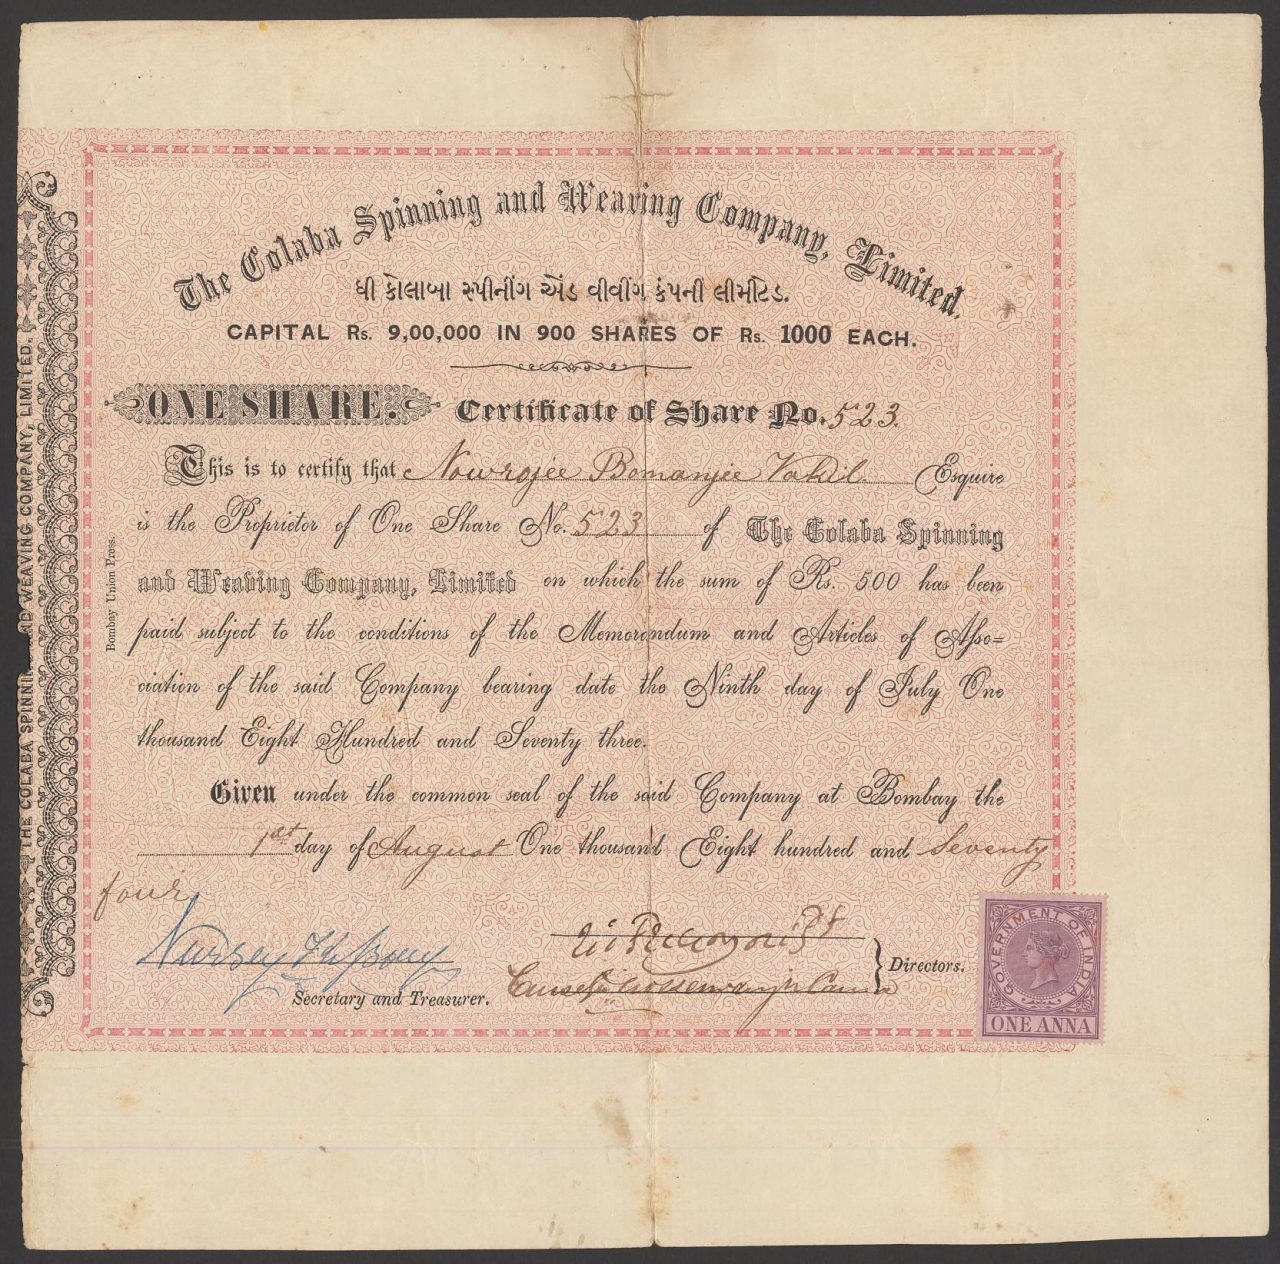 The Colaba Spinning and Weaving Company, Limited.
ધી કોલાબા સ્પીનીંગ એંડ વીવીંગ કંપની લીમીટેડ.
CAPITAL Rs. 9,00,000 IN 900 SHARES OF Rs. 1000 EACH.
ONE SHARE. Certificate of Share No. 523.
This is to certify that Nowrojee Bomanjee Vakil Esquire
is the Proprietor of One Share No. 523 of The Colaba Spinning
and Weaving Company, Limited on which the sum of Rs. 500 has been
paid subject to the conditions of the Memorandum and Articles of Asso=
ciation of the said Company bearing date the Ninth day of July One
thousand Eight Hundred and Seventy three.
Given under the common seal of the said Company at Bombay the
1st day of August One thousand Eight hundred and Seventy
four
Secretary and Treasurer.
Directors.
GOVERNMENT OF INDIA
ONE ANNA
Bombay Union Press.
THE COLABA SPINNI ND WEAVING COMPANY, LIMITED.